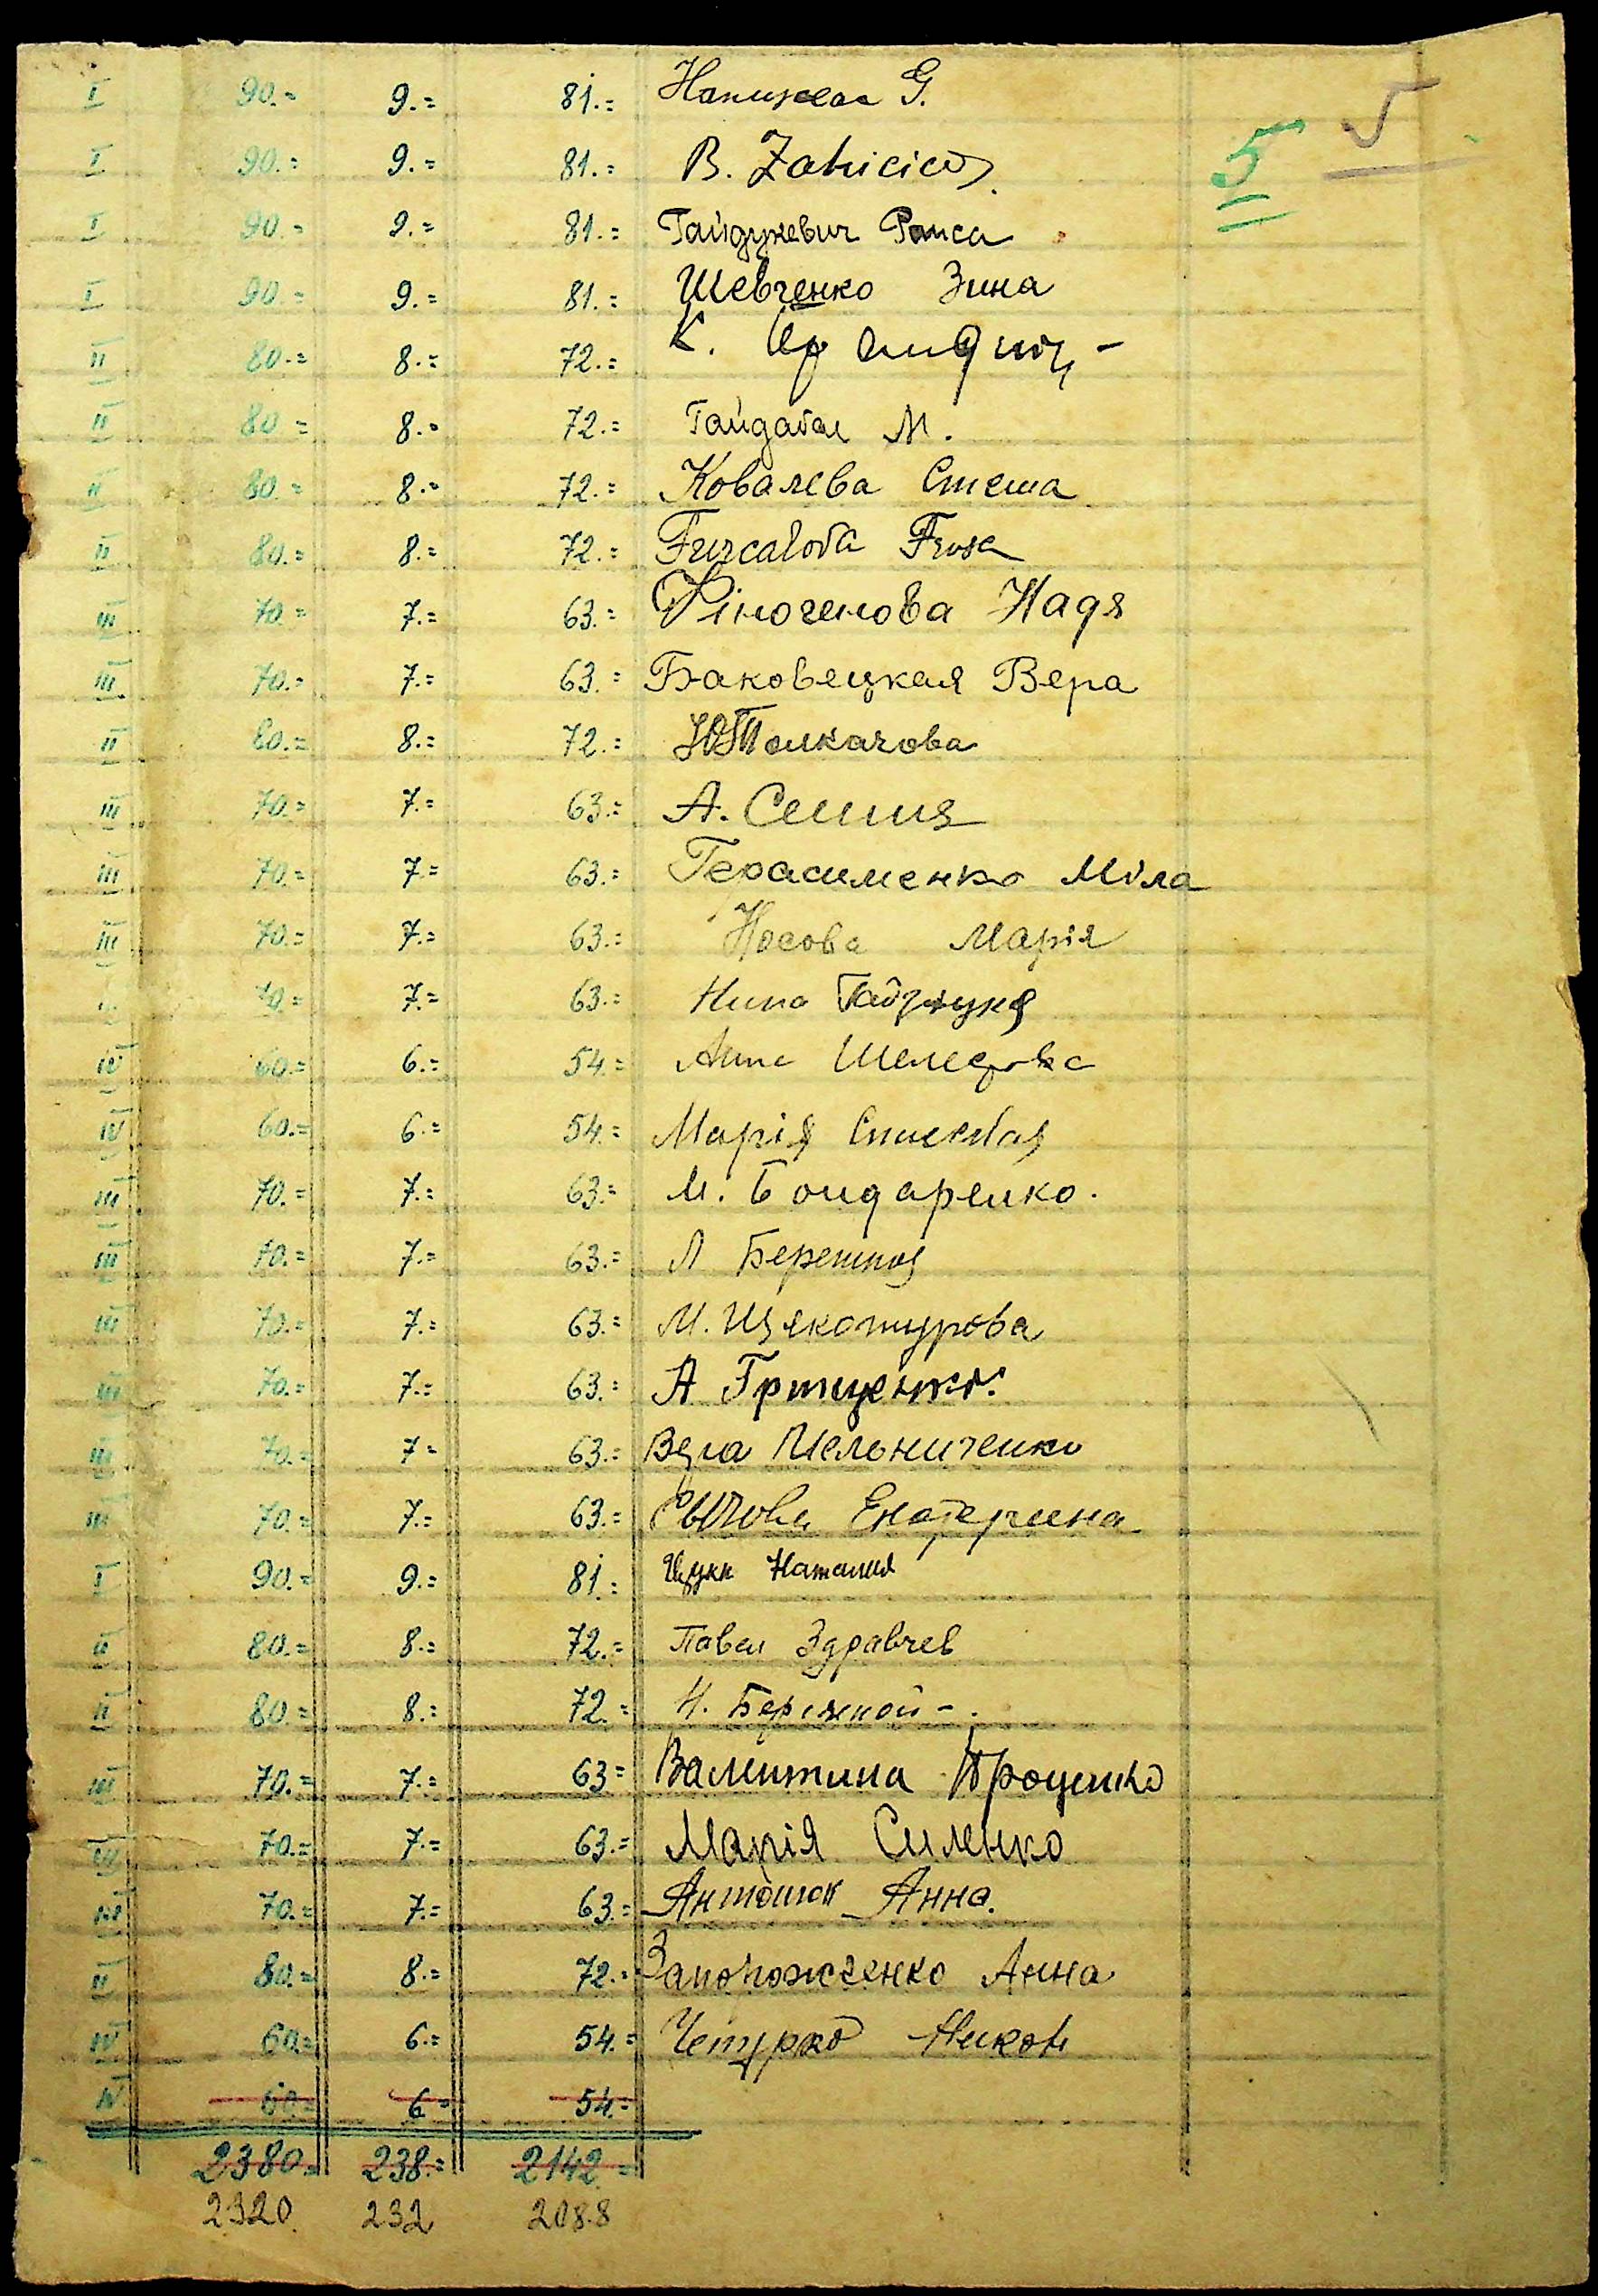 I 90.= 9.= 81.= G.
I 90.= 9.= 81.= B.
I 90.= 9.= 81.= Гайдукевич Раиса
I 90.= 9.= 81.= Шевченко Зина
II 80.= 8.= 72.= К.
II 80.= 8.= 72.= М.
II 80.= 8.= 72.= Ковалева Стеша
II 80.= 8.= 72.= Furcalova Frosa
III 70.= 7.= 63.= Финогенова Надя
III 70.= 7.= 63.= Баковецкая Вера
II 80.= 8.= 72.= Толкачова
III 70.= 7.= 63.= А.
III 70.= 7.= 63.= Герасименко Міла
III 70.= 7.= 63.= Носова Марія
70.= 7.= 63.= Нина
IV 60.= 6.= 54.= Анна
IV 60.= 6.= 54.= Марія
III 70.= 7.= 63.= М. Бондаренко.
III 70.= 7.= 63.= Л
III 70.= 7.= 63.= М. Щекотурова
III 70.= 7.= 63.= А Гриценко.
III 70.= 7.= 63.= Вера Мельниченко
III 70.= 7.= 63.= Екатерина
I 90.= 9.= 81.= Наталия
II 80.= 8.= 72.= Павел Здравчев
II 80.= 8.= 72.= Н. Бережной -.
III 70.= 7.= 63= Валентина Проценко
III 70.= 7.= 63.= Марія Силенко
III 70.= 7.= 63.= Антошок Анна.
II 80.= 8.= 72.= Запорожченко Анна
IV 60.= 6.= 54.= Никон
IV 60= 6= 54=
2380.= 238.= 2142=
2320. 232 2088
5